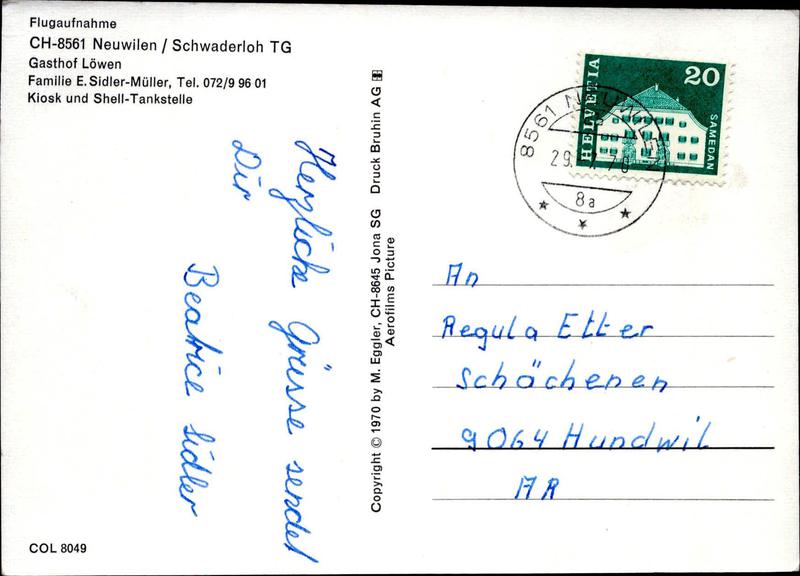 Flugaufnahme
CH-8561 Neuwilen / Schwaderloh TG
Gasthof Löwen
Familie E. Sidler-Müller, Tel. 072/9 96 01
Kiosk und Shell-Tankstelle
Herzliche Grüsse sendet
Dir
Beatrice Sidler
COL 8049
Copyright © 1970 by M. Eggler, CH-8645 Jona SG Druck Bruhin AG
Aerofilms Picture
HELVETIA
20
SAMEDAN
8561 NEUWILEN
8a
An
Regula Etter
Schächenen
9064 Hundwil
AR